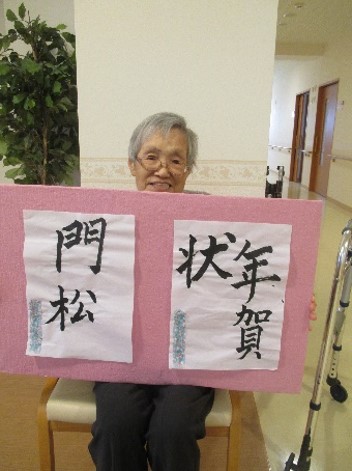 年賀
状
門松